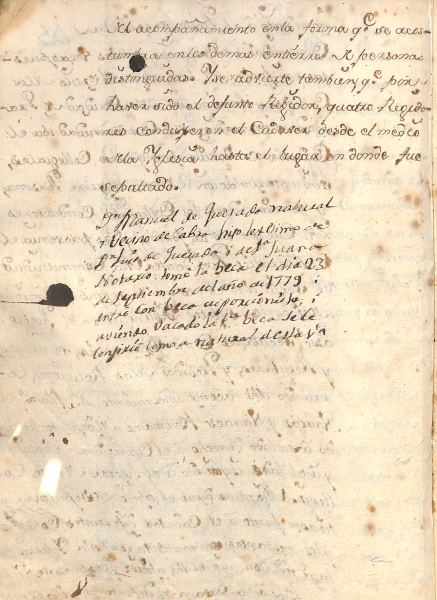 el acompañamiento en la forma q.e se acos-
tumbra en los demas entierros de personas
distinguidas. Y se advierte tambien, q.e por
haver sido el defunto Regidor, quatro Regido-
res condujeron el Cadaver desde el medio
de la Yglesia hasta el lugar en donde fue
sepultado.
Dn Manuel de Quesada natural
y Vecino de Cabra hijo lexitimo de
Dn Luis de Quesada i de Da Juana
Notario tomó la beca el dia 23
de Septiembre del año de 1779 i
entro con beca de porcionista, i
aviendo vacado la beca se le
confirió como a natural de esta Va